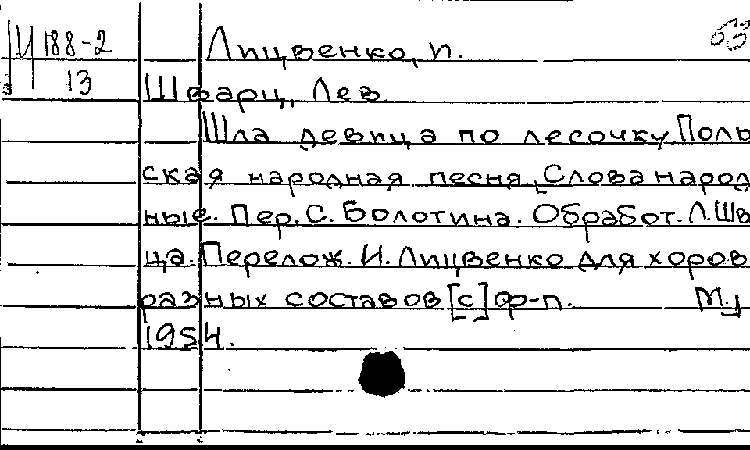 М188-2
13
Лицвенко, И.
Шварц, Лев
Шла девица по лесочку. Поль
ская народная песня. Слова народ
ные. Пер. С. Болотина. Обработ. Л. Шв
ца. Перелож. И. Лицвенко для хоров
разных составов [с] ф-п. М.,
1954.